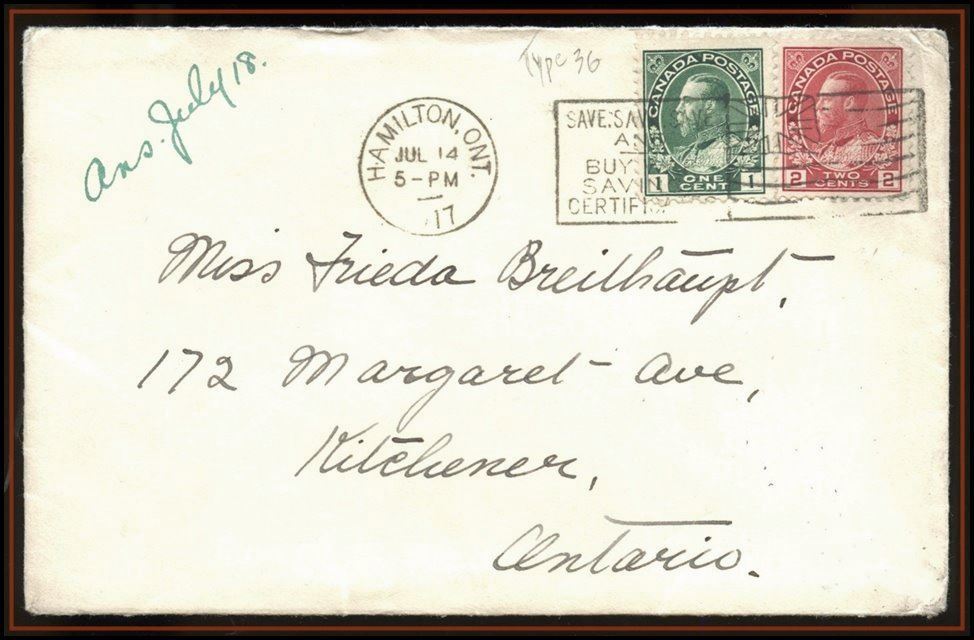 Ans. July 18.
Type 36
HAMILTON, ONT.
JUL 14
5-PM
17
SAVE: SAVE SAVE
BUY
CANADA POSTAGE
1 ONE CENT 1
CANADA POSTAGE
2 TWO CENTS 2
Miss Frieda Breithaupt,
172 Margaret Ave,
Kitchener,
Ontario.